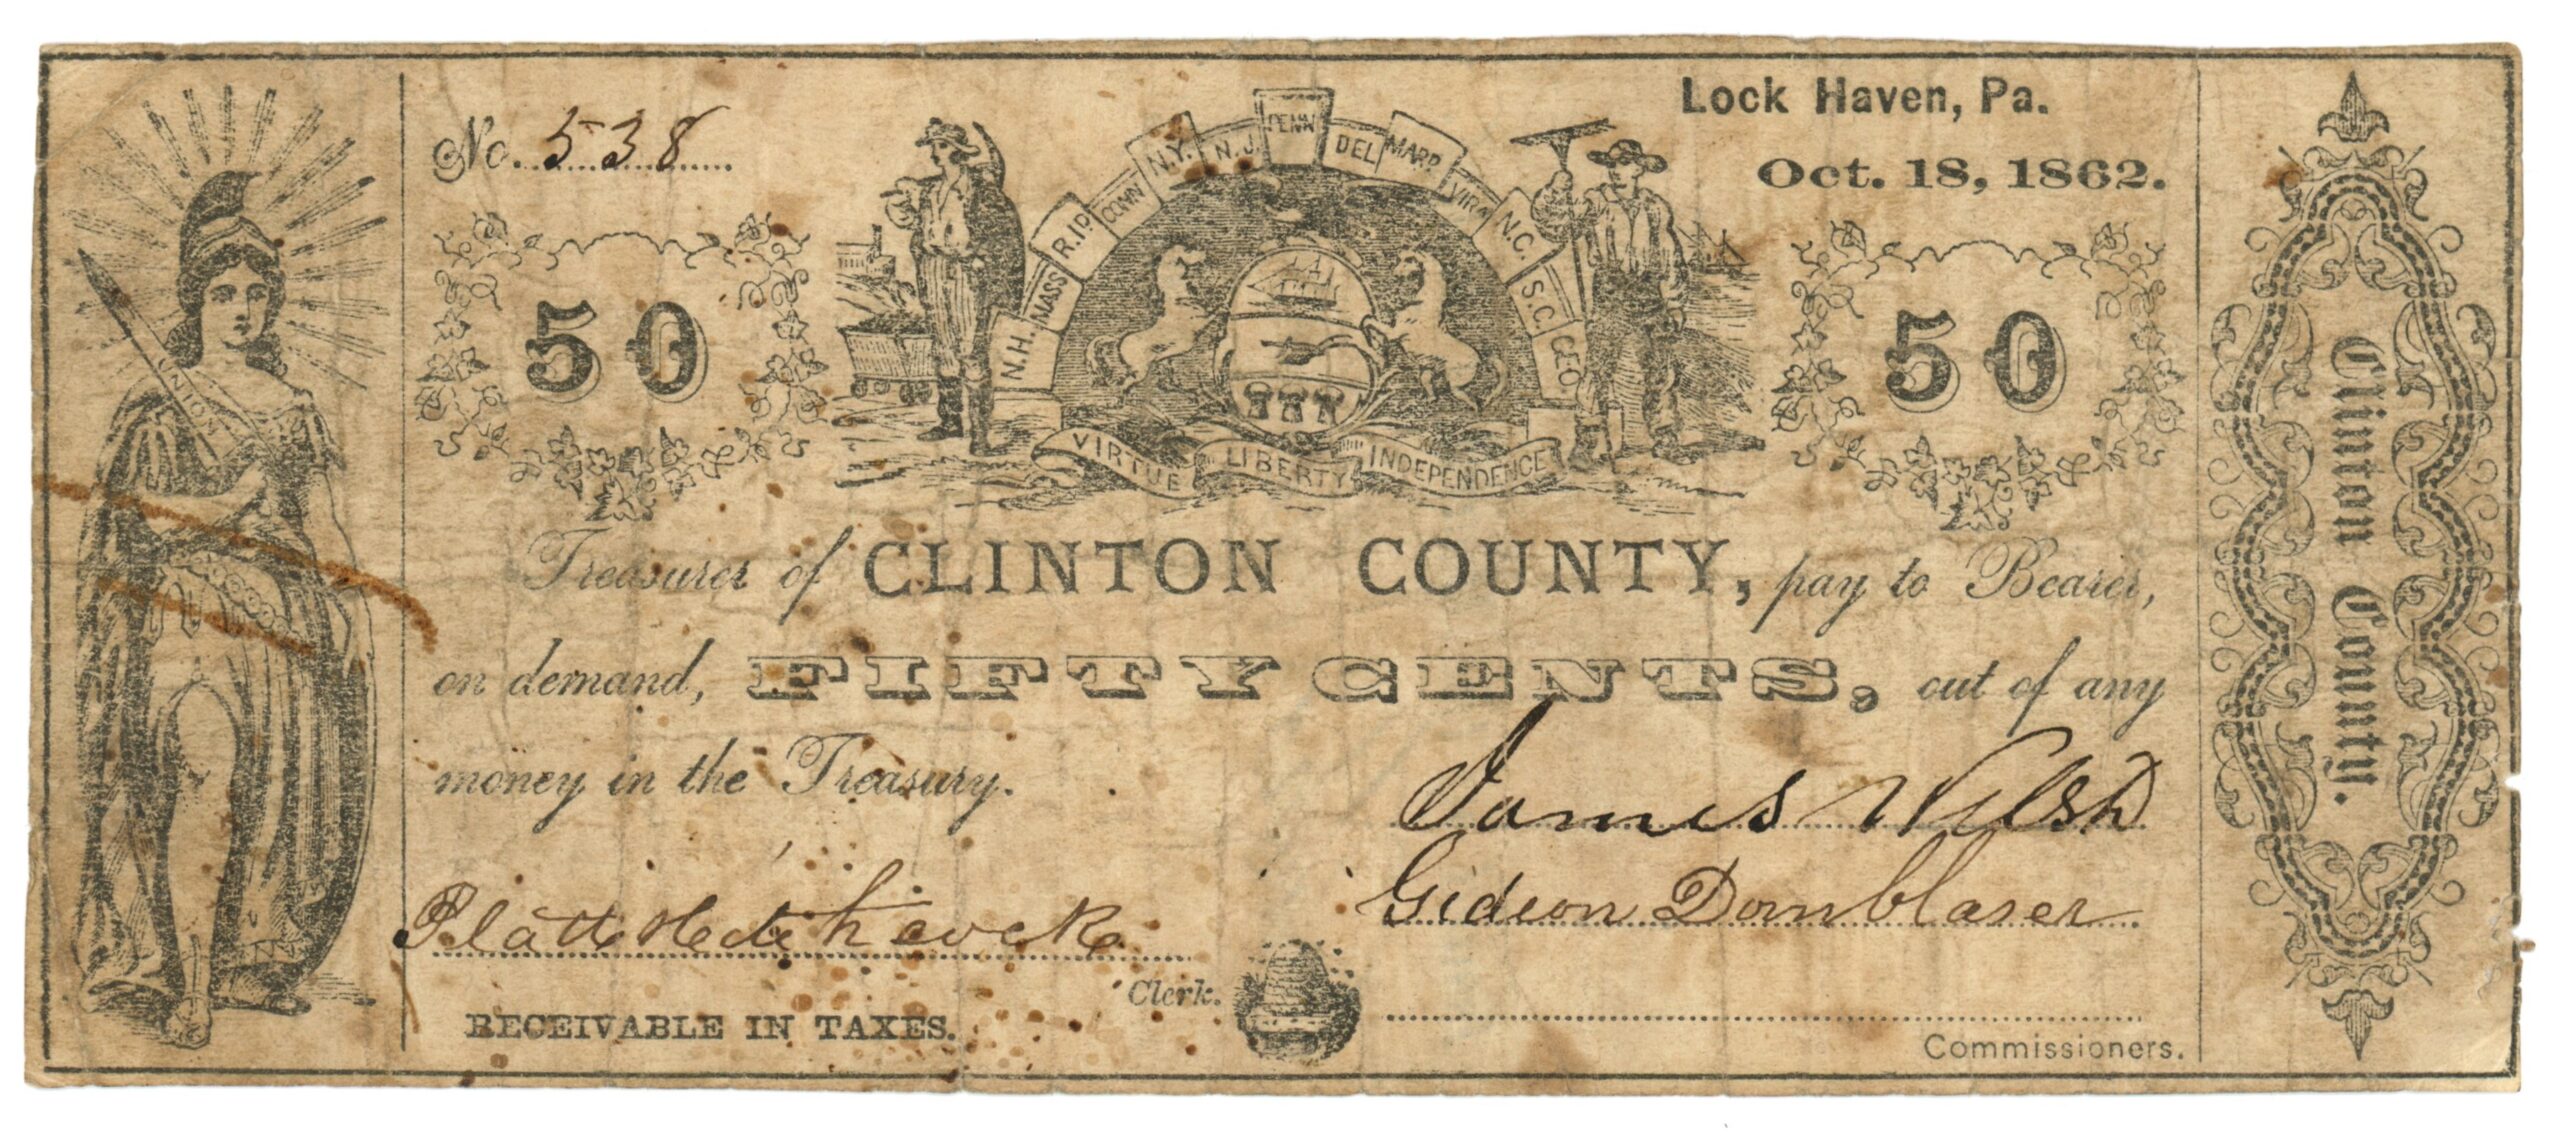 No. 538
Lock Haven, Pa.
Oct. 18, 1862.
UNION
50
N.H. MASS R.ID CONN N.Y. N.J. PENN DEL MARD VIRA N.C. S.C. GEO
50
VIRTUE LIBERTY INDEPENDENCE
Treasurer of CLINTON COUNTY, pay to Bearer,
on demand, FIFTY CENTS, out of any
money in the Treasury.
James Welsh
Gideon Dornblaser
Platt Hitchcock
Clerk.
RECEIVABLE IN TAXES.
Commissioners.
Clinton County.